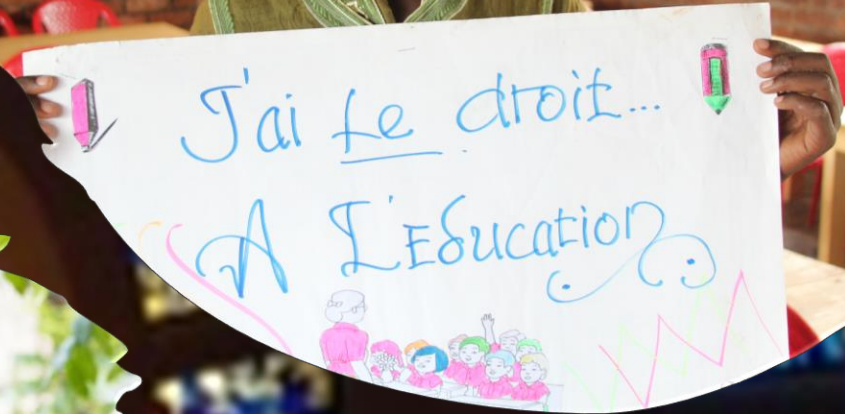 J'ai Le droit...
A L'Education